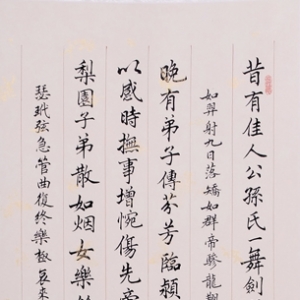 昔有佳人公孫氏一舞劍
如羿射九日落矯如群帝驂龍翔
晚有弟子傳芬芳臨潁
以感時撫事增惋傷先帝
梨園子弟散如烟女樂餘
瑟玳弦急管曲復終樂極哀來